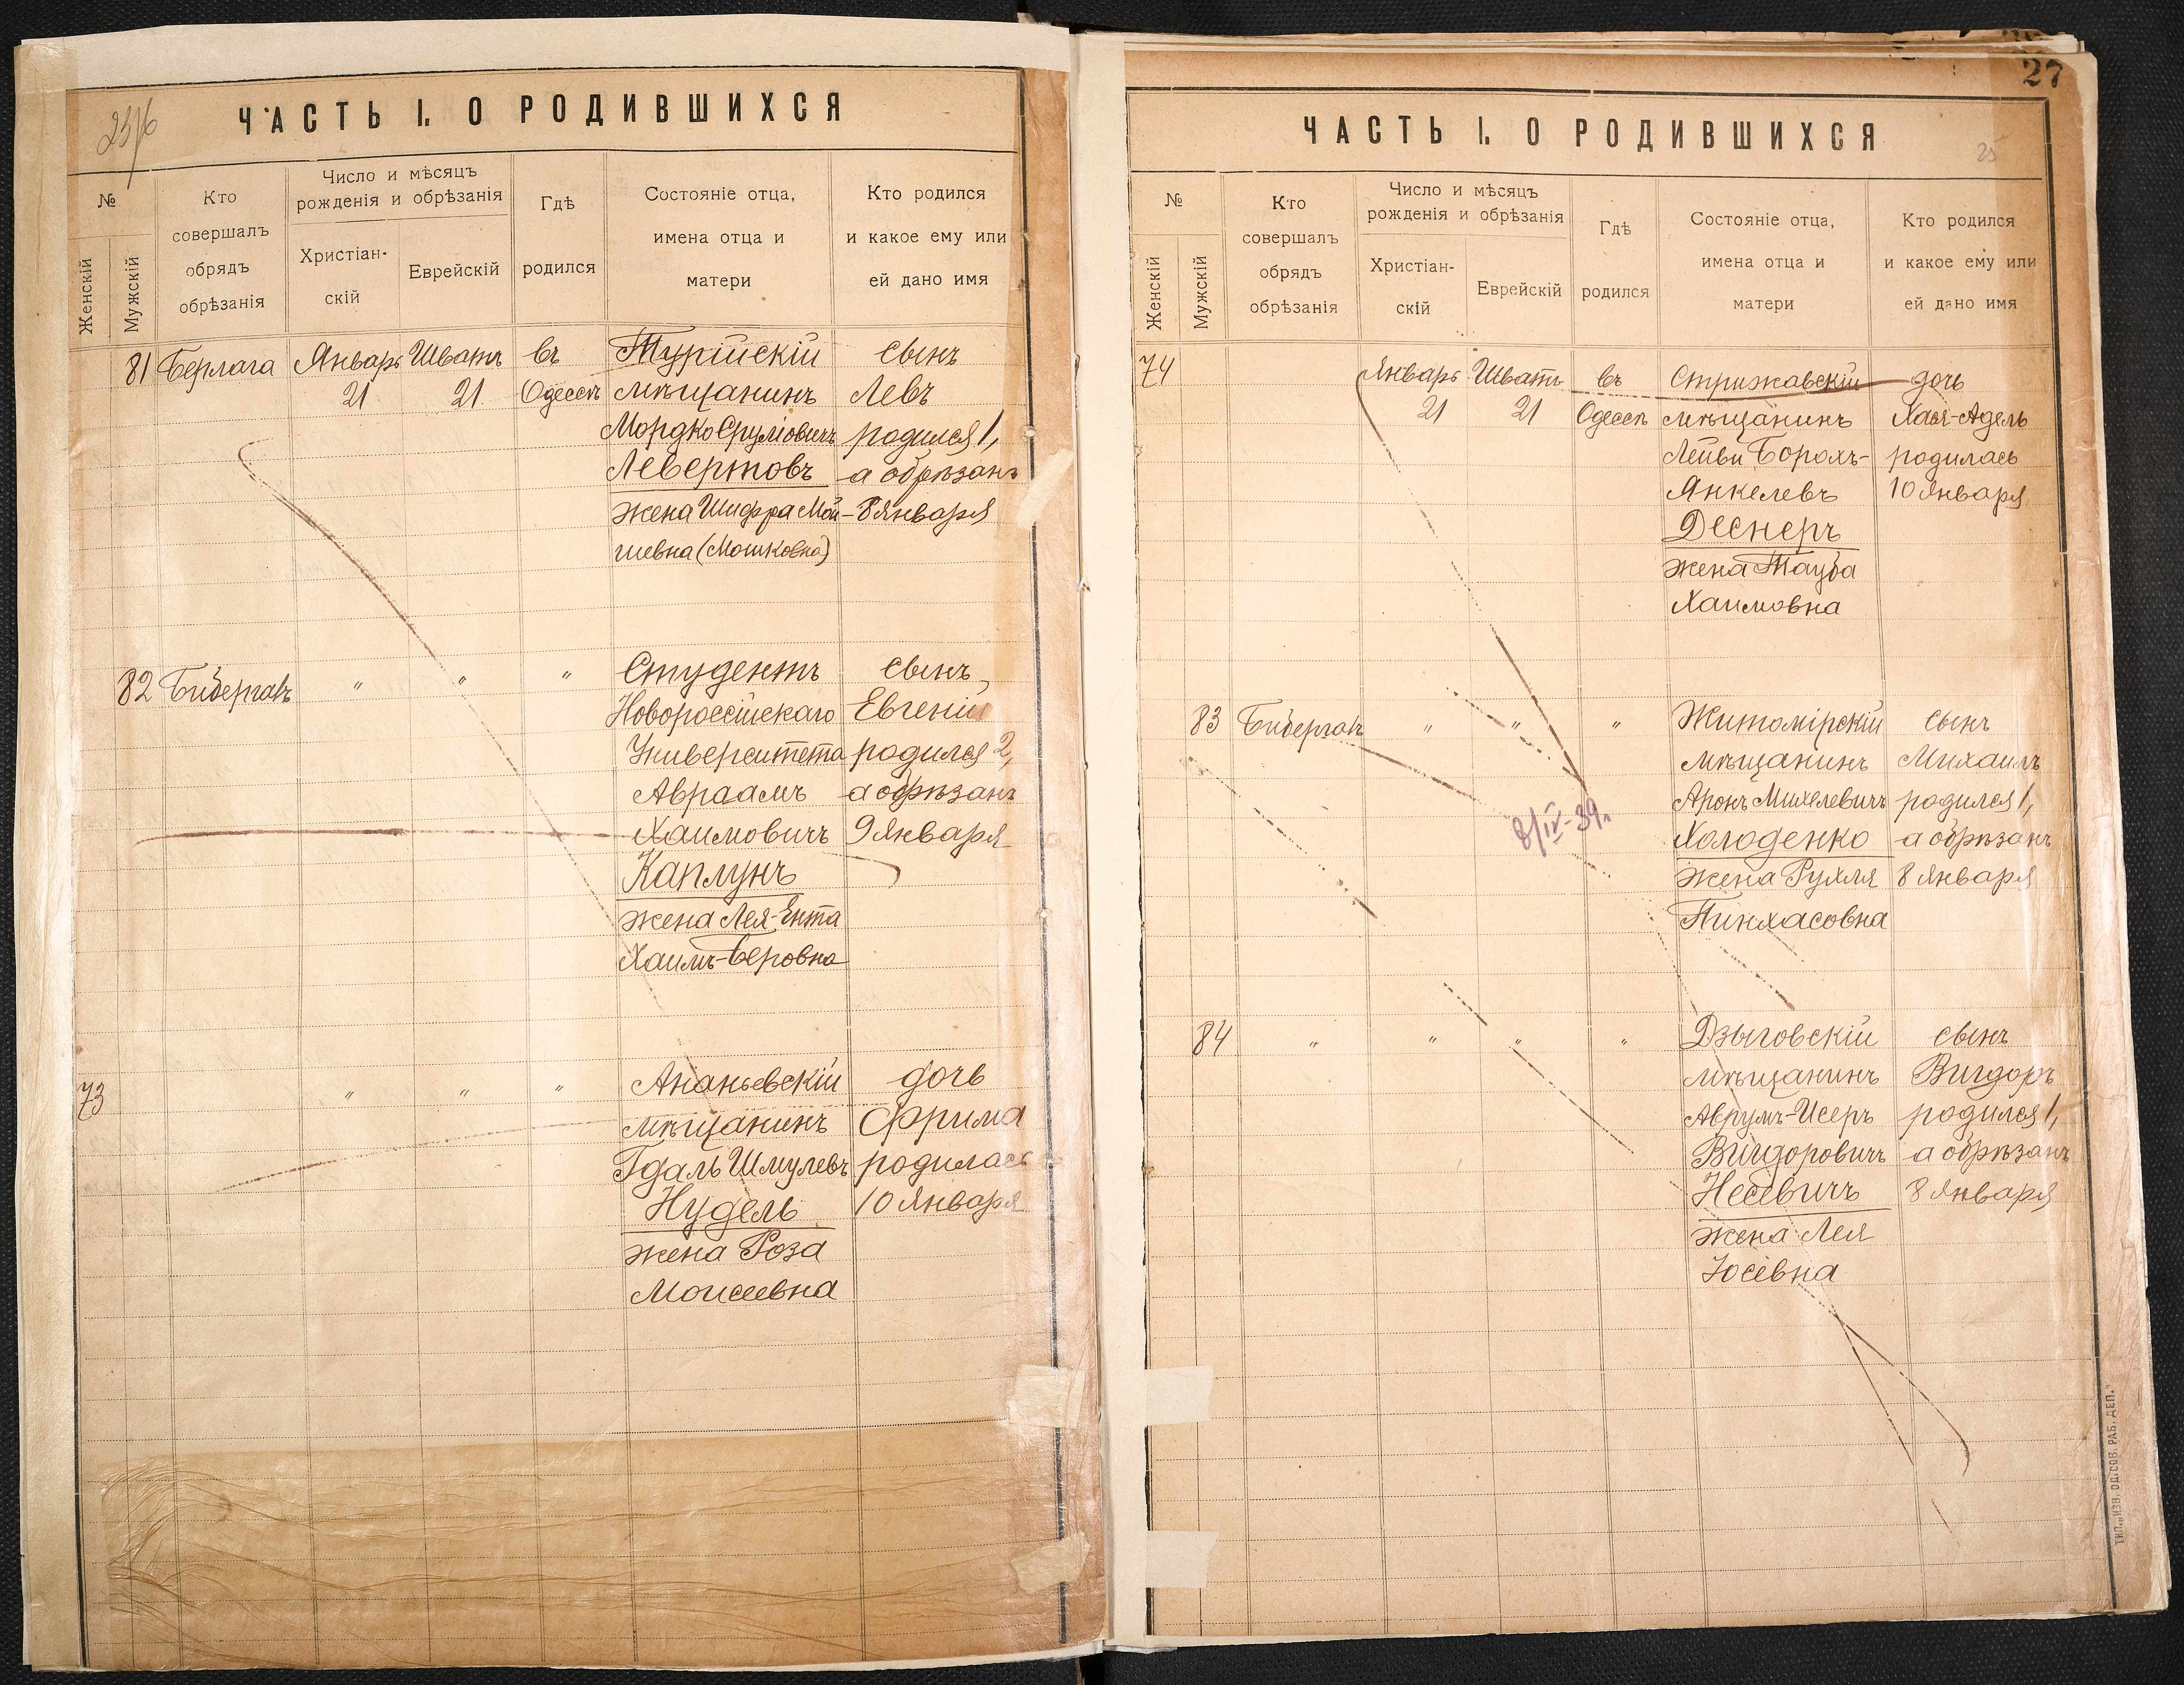 23/6
ЧАСТЬ I. О РОДИВШИХСЯ
№
Женскій
Мужскій
Кто
совершалъ
обрядъ
обрѣзанія
Число и мѣсяцъ
рожденія и обрѣзанія
Христіан-
скій
Еврейскій
Гдѣ
родился
Состояніе отца,
имена отца и
матери
Кто родился
и какое ему или
ей дано имя
81 Берлага Январь Шватъ въ Турійскій сынъ
21 21 Одессѣ мѣщанинъ Левъ
Мордко Сруліовичъ родился 1,
Левертовъ а обрѣзанъ
жена Шифра Мой- 8 января
шевна (Мошковна)
82 Бибергалъ " " " Студентъ сынъ
Новороссійскаго Евгеній
Университета родился 2,
Авраамъ а обрѣзанъ
Хаимовичъ 9 января
Каплунъ
жена Лея-Ента
Хаимъ-Беровна
73 " " " Ананьевскій дочь
мѣщанинъ Фрима
Гдаль Шмулевъ родилась
Нудель 10 января
жена Роза
Моисеевна
27
25
ЧАСТЬ I. О РОДИВШИХСЯ
№
Женскій
Мужскій
Кто
совершалъ
обрядъ
обрѣзанія
Число и мѣсяцъ
рожденія и обрѣзанія
Христіан-
скій
Еврейскій
Гдѣ
родился
Состояніе отца,
имена отца и
матери
Кто родился
и какое ему или
ей дано имя
74 Январь Шватъ въ Стрижавскій дочь
21 21 Одессѣ мѣщанинъ Хая-Адель
Лейви Борохъ- родилась
Янкелевъ 10 января
Деснеръ
жена Тауба
Хаимовна
83 Бибергалъ " " " Житомірскій сынъ
мѣщанинъ Михаилъ
Аронъ Михелевичъ родился 1,
Холоденко а обрѣзанъ
жена Рухля 8 января
Пинхасовна
8/IV-39г
84 " " " " Дзыговскій сынъ
мѣщанинъ Вигдоръ
Аврумъ-Исеръ родился 1,
Вигдоровичъ а обрѣзанъ
Несевичъ 8 января
жена Лея
Іосевна
ТИП. „ИЗВ. ОД. СОВ. РАБ. ДЕП."